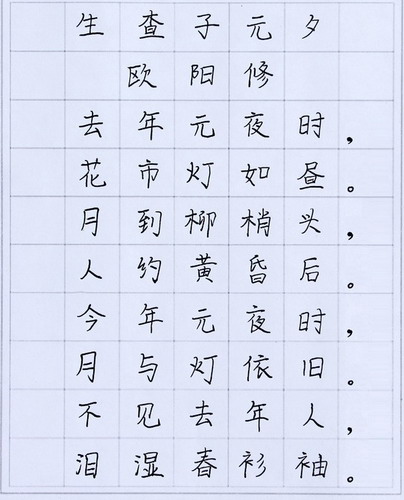 生查子元夕
欧阳修
去年元夜时，
花市灯如昼。
月到柳梢头，
人约黄昏后。
今年元夜时，
月与灯依旧。
不见去年人，
泪湿春衫袖。